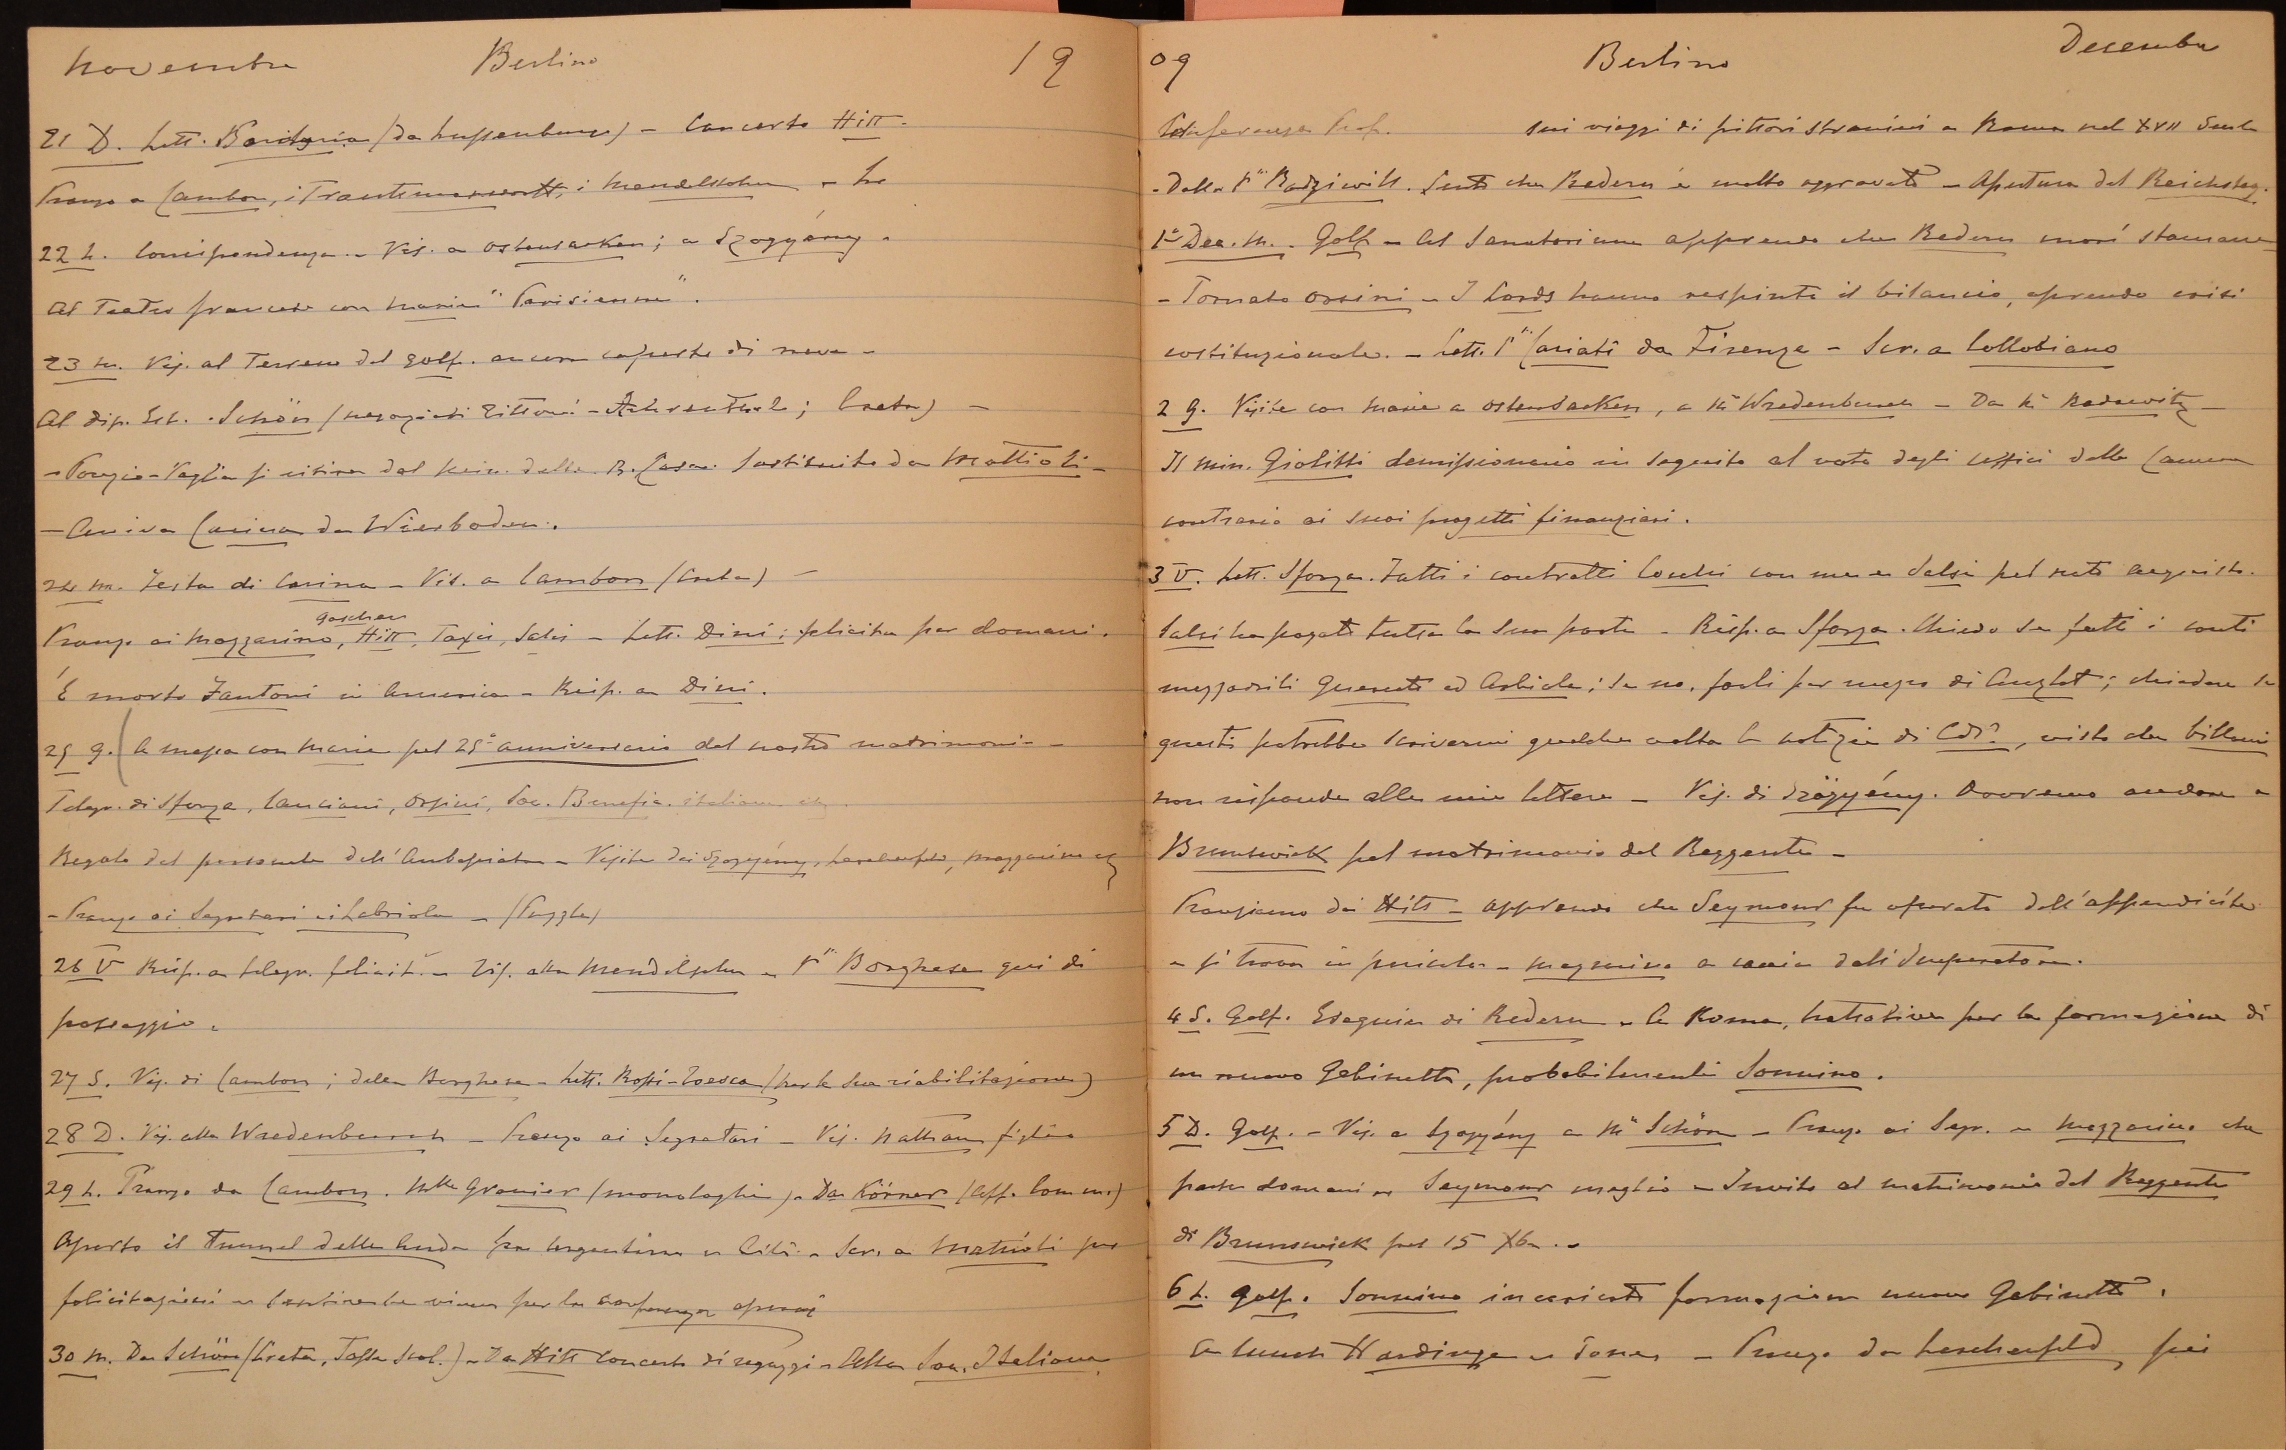 Novembre Berlino 19
21 D. Lett. (da Lussemburgo) – Concerto Hitt.
Pranzo a Cambon, i Trautmannsdorff, i Mendelssohn –
22 L. Corrispondenza – Vis. a Ostensacken; a Szogyény.
Al Teatro francese con Maria "Parisienne".
23 M. Vis. al Terreno del golf. ancora coperto di neve –
Al dip. Est. Schön (negoziati Tittoni – Aehrenthal; Creta) –
– Ponzio-Vaglia si ritira dal Min. della R. Casa. Sostituito da Mattioli –
– Arriva Carina da Wiesbaden.
24 M. Festa di Carina – Vis. a Cambon (Creta) –
Goschen
Pranzo ai Mazzarino, Hitt, Taxis, Salis – Lett. Dini; felicita per domani.
È morto Fantoni in America – Risp. a Dini.
25 G. A messa con Maria pel 25° anniversario del nostro matrimonio –
Telegr. di Sforza, Lanciani, Orsini, Soc. Benefic. italiana etc
Regalo del personale dell'Ambasciata – Visite dei Szogyény, Lerchenfeld, Mazzarino etc
– Pranzo ai Segretari e i Labriola – (Puzzle)
26 V Risp. a telegr. felicit. – Vis. alla Mendelssohn – Pssa Borghese qui di
passaggio.
27 S. Vis. di Cambon; della Borghese – Lett. Rossi-Toesca (per la sua riabilitazione)
28 D. Vis. alla Wredenburch – Pranzo ai Segretari – Vis. Nathan figlio
29 L. Pranzo da Cambon. Mlle Granier (monologhi). Da Körner (Aff. Comm.)
Aperto il Tunnel delle Ande fra Argentina e Cilì. – Scr. a Mattioli per
felicitazioni –
30 M. Da Schön (Creta, Tasse Scol.) – Da Hitt concerto di ragazzi – Alla Soc. Italiana
09 Berlino Decembre
Conferenza Prof. sui viaggi di pittori stranieri a Roma nel XVII Secolo
– Dalla Pssa Radziwill. Sento che Redern è molto aggravato – Apertura del Reichstag.
1° Dec. M. Golf – Al Sanatorium apprendo che Redern morì stamane –
– Tornato Orsini – I Lords hanno respinto il bilancio, aprendo crisi
costituzionale. – Lett. Pssa Cariati da Firenze – Scr. a Collobiano
2 G. Visite con Maria a Ostensacken, a Mme Wredenburch – Da Mme Radowitz –
Il min. Giolitti demissionario in seguito al voto degli uffici della Camera
contrario ai suoi progetti finanziari.
3 V. Lett. Sforza. Fatti i contratti con me e Salsi pel noto acquisto.
Salsi ha pagato tutta la sua parte – Risp. a Sforza. Chiedo se fatti i conti
mezzadrili ed; se no, farli per mezzo di; chiedere se
questi potrebbe scrivermi qualche volta le notizie di, visto che
non risponde alle mie lettere – Vis. di Szögyény. Dovremo andare a
Brunswick pel matrimonio del Reggente –
Pranziamo dai Hitt – apprendo che Seymour fu operato dell'appendicite
e si trova in pericolo – Mazzarino a caccia dall'Imperatore.
4 S. Golf. Esequie di Redern – A Roma, trattative per la formazione di
un nuovo Gabinetto, probabilmente Sonnino.
5 D. Golf. – Vis. a Szogyény a Mme Schön – Pranzo ai Segr. e Mazzarino che
parte domani – Seymour meglio – Invito al matrimonio del Reggente
di Brunswick pel 15 Xbre. –
6 L. Golf. Sonnino incaricato formazione nuovo Gabinetto.
A lunch Hardinge e – Pranzo da Lerchenfeld, poi